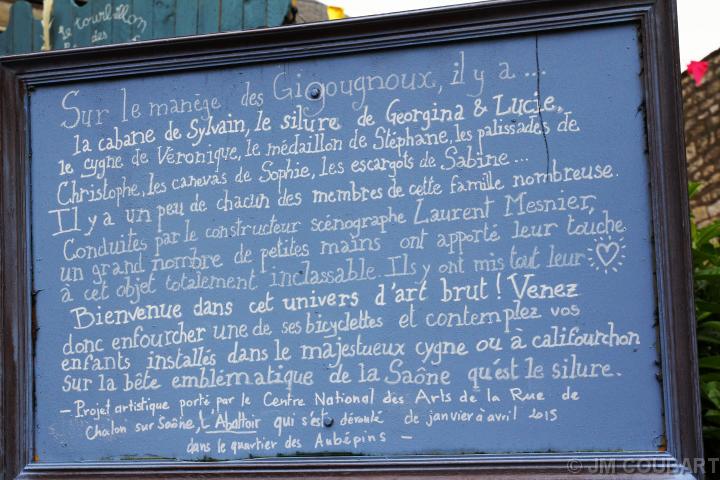 le tourbillon
des
Sur le manège des Gigougnoux, il y a ...
la cabane de Sylvain, le silure de Georgina & Lucie,
le cygne de Véronique, le médaillon de Stéphane, les palissades de
Christophe, les canevas de Sophie, les escargots de Sabine ...
Il y a un peu de chacun des membres de cette famille nombreuse.
Conduites par le constructeur scénographe Laurent Mesnier,
un grand nombre de petites mains ont apporté leur touche
à cet objet totalement inclassable. Ils y ont mis tout leur
Bienvenue dans cet univers d'art brut ! Venez
donc enfourcher une de ses bicyclettes et contemplez vos
enfants installés dans le majestueux cygne ou à califourchon
sur la bête emblématique de la Saône qu'est le silure.
– Projet artistique porté par le Centre National des Arts de la Rue de
Chalon sur Saône, L'Abattoir qui s'est déroulé de janvier à avril 2015
dans le quartier des Aubépins –
© JM COUBART